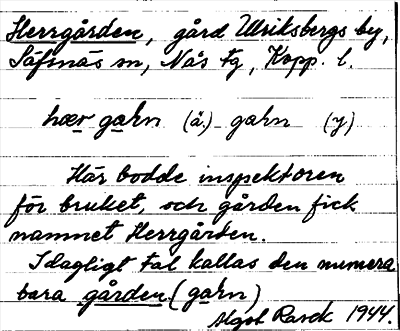 Herrgården, gård Ulriksbergs by,
Säfsnäs sn, Nås tg, Kopp. l.
hær gaḷn (ä.) gaḷn (y)
Här bodde inspektoren
för bruket, och gården fick
namnet Herrgården.
I dagligt tal kallas den numera
bara gården. (gaḷn)
Algot Rask 1944.